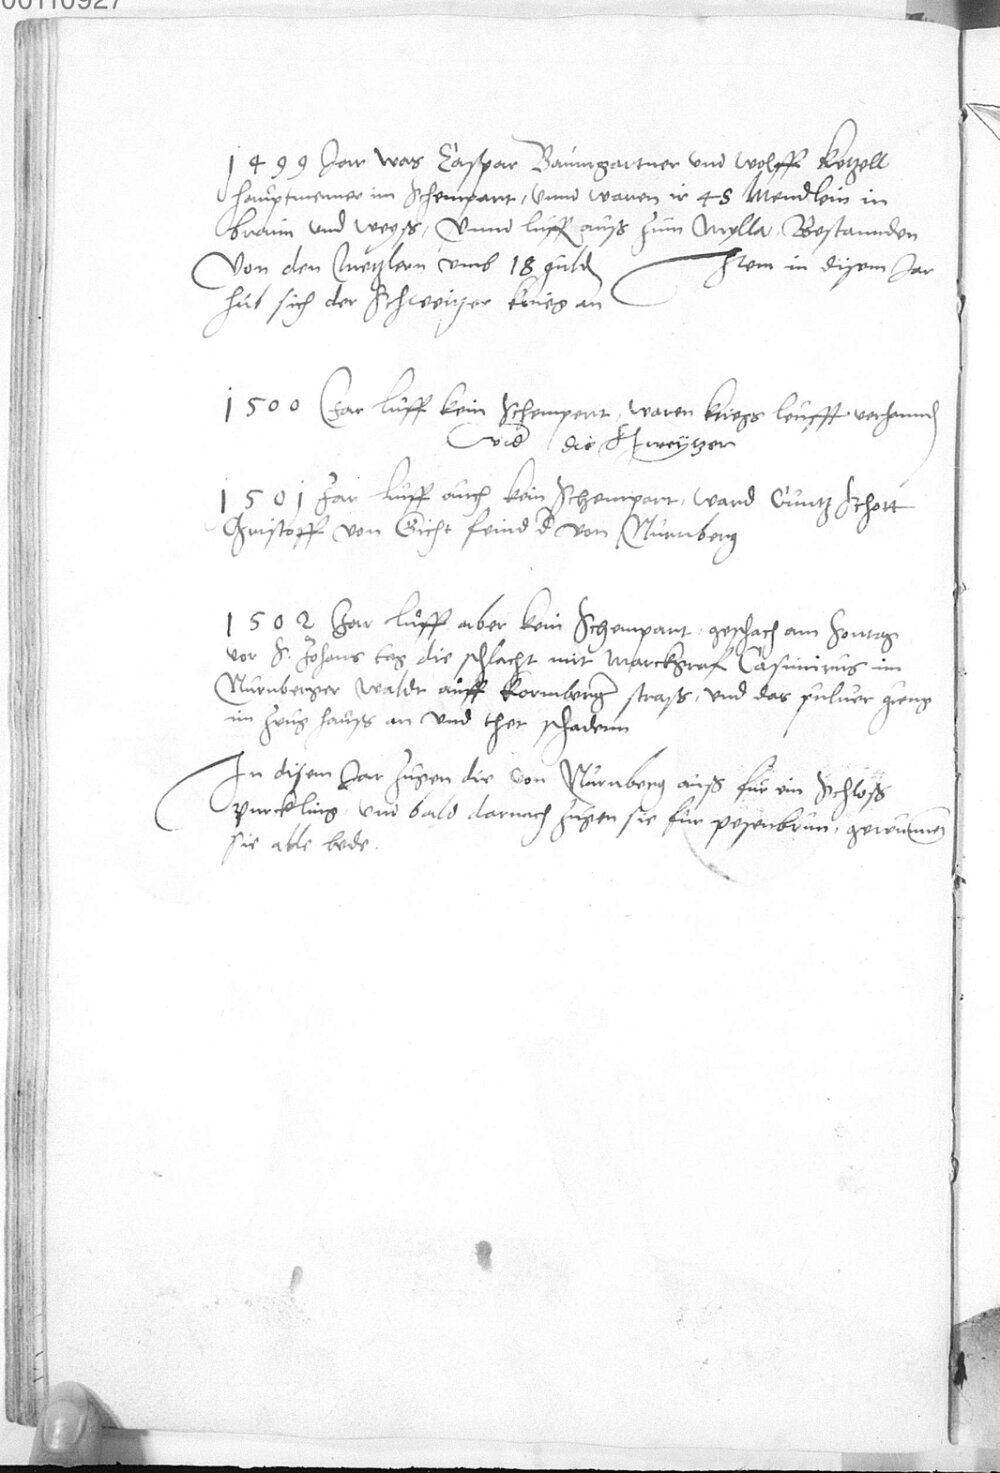 00110927
1499 Jar was Caspar Baumgartner vnd wolff Ketzell
hauptmener im Schempart, vnnd waren ir 48 Mendlein in
braun vnd weyss, Vnnd luff auß zum Mylla, Bestannden
Von den Metzlern vmb 18 guld Item in disem Jar
hub sich der Schweitzer krieg an
1500 Jar luff kein Schempert, waren kriegs leufft verhannd
wid die Schweytzer
1501 Jar luff auch kein Schempart, ward Cuntz Schott
Cristoff von Gich feind d von Nürnberg
1502 Jar luff aber kein Schempart, geschach am Sontag
vor S. Johans tag die schlacht mit Marckgraf Casimirus im
Nurnberger Waldt auff Kornberg straß, vnd das puluer gieng
im zeug hauß an vnd thet schadenn
In disem Jar zugen die von Nürnberg auß für ein Schloß
Purckling, vnd bald darnach zugen sie für pesenbrun, gewunnen
sie alle bede.